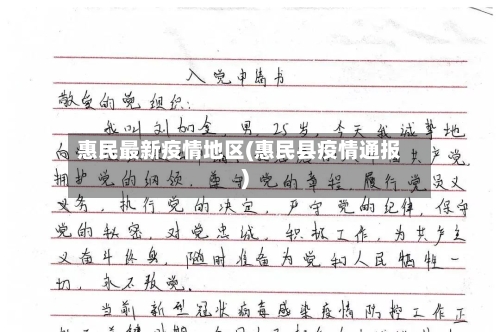 入党申请书
敬爱的党组织:
我叫刘如金,男,25岁,今天我诚挚地
向
惠民最新疫情地区(惠民县疫情通报
)
共产党,
拥护党的纲领,遵守党的章程,履行党员义
义务,执行党的决定,严守党的纪律,保守
党的秘密,对党忠诚,积极工作,为共产主
义奋斗终身,随时准备为党和人民牺牲一
切,永不叛党。
当前新型冠状病毒感染疫情防控工作正